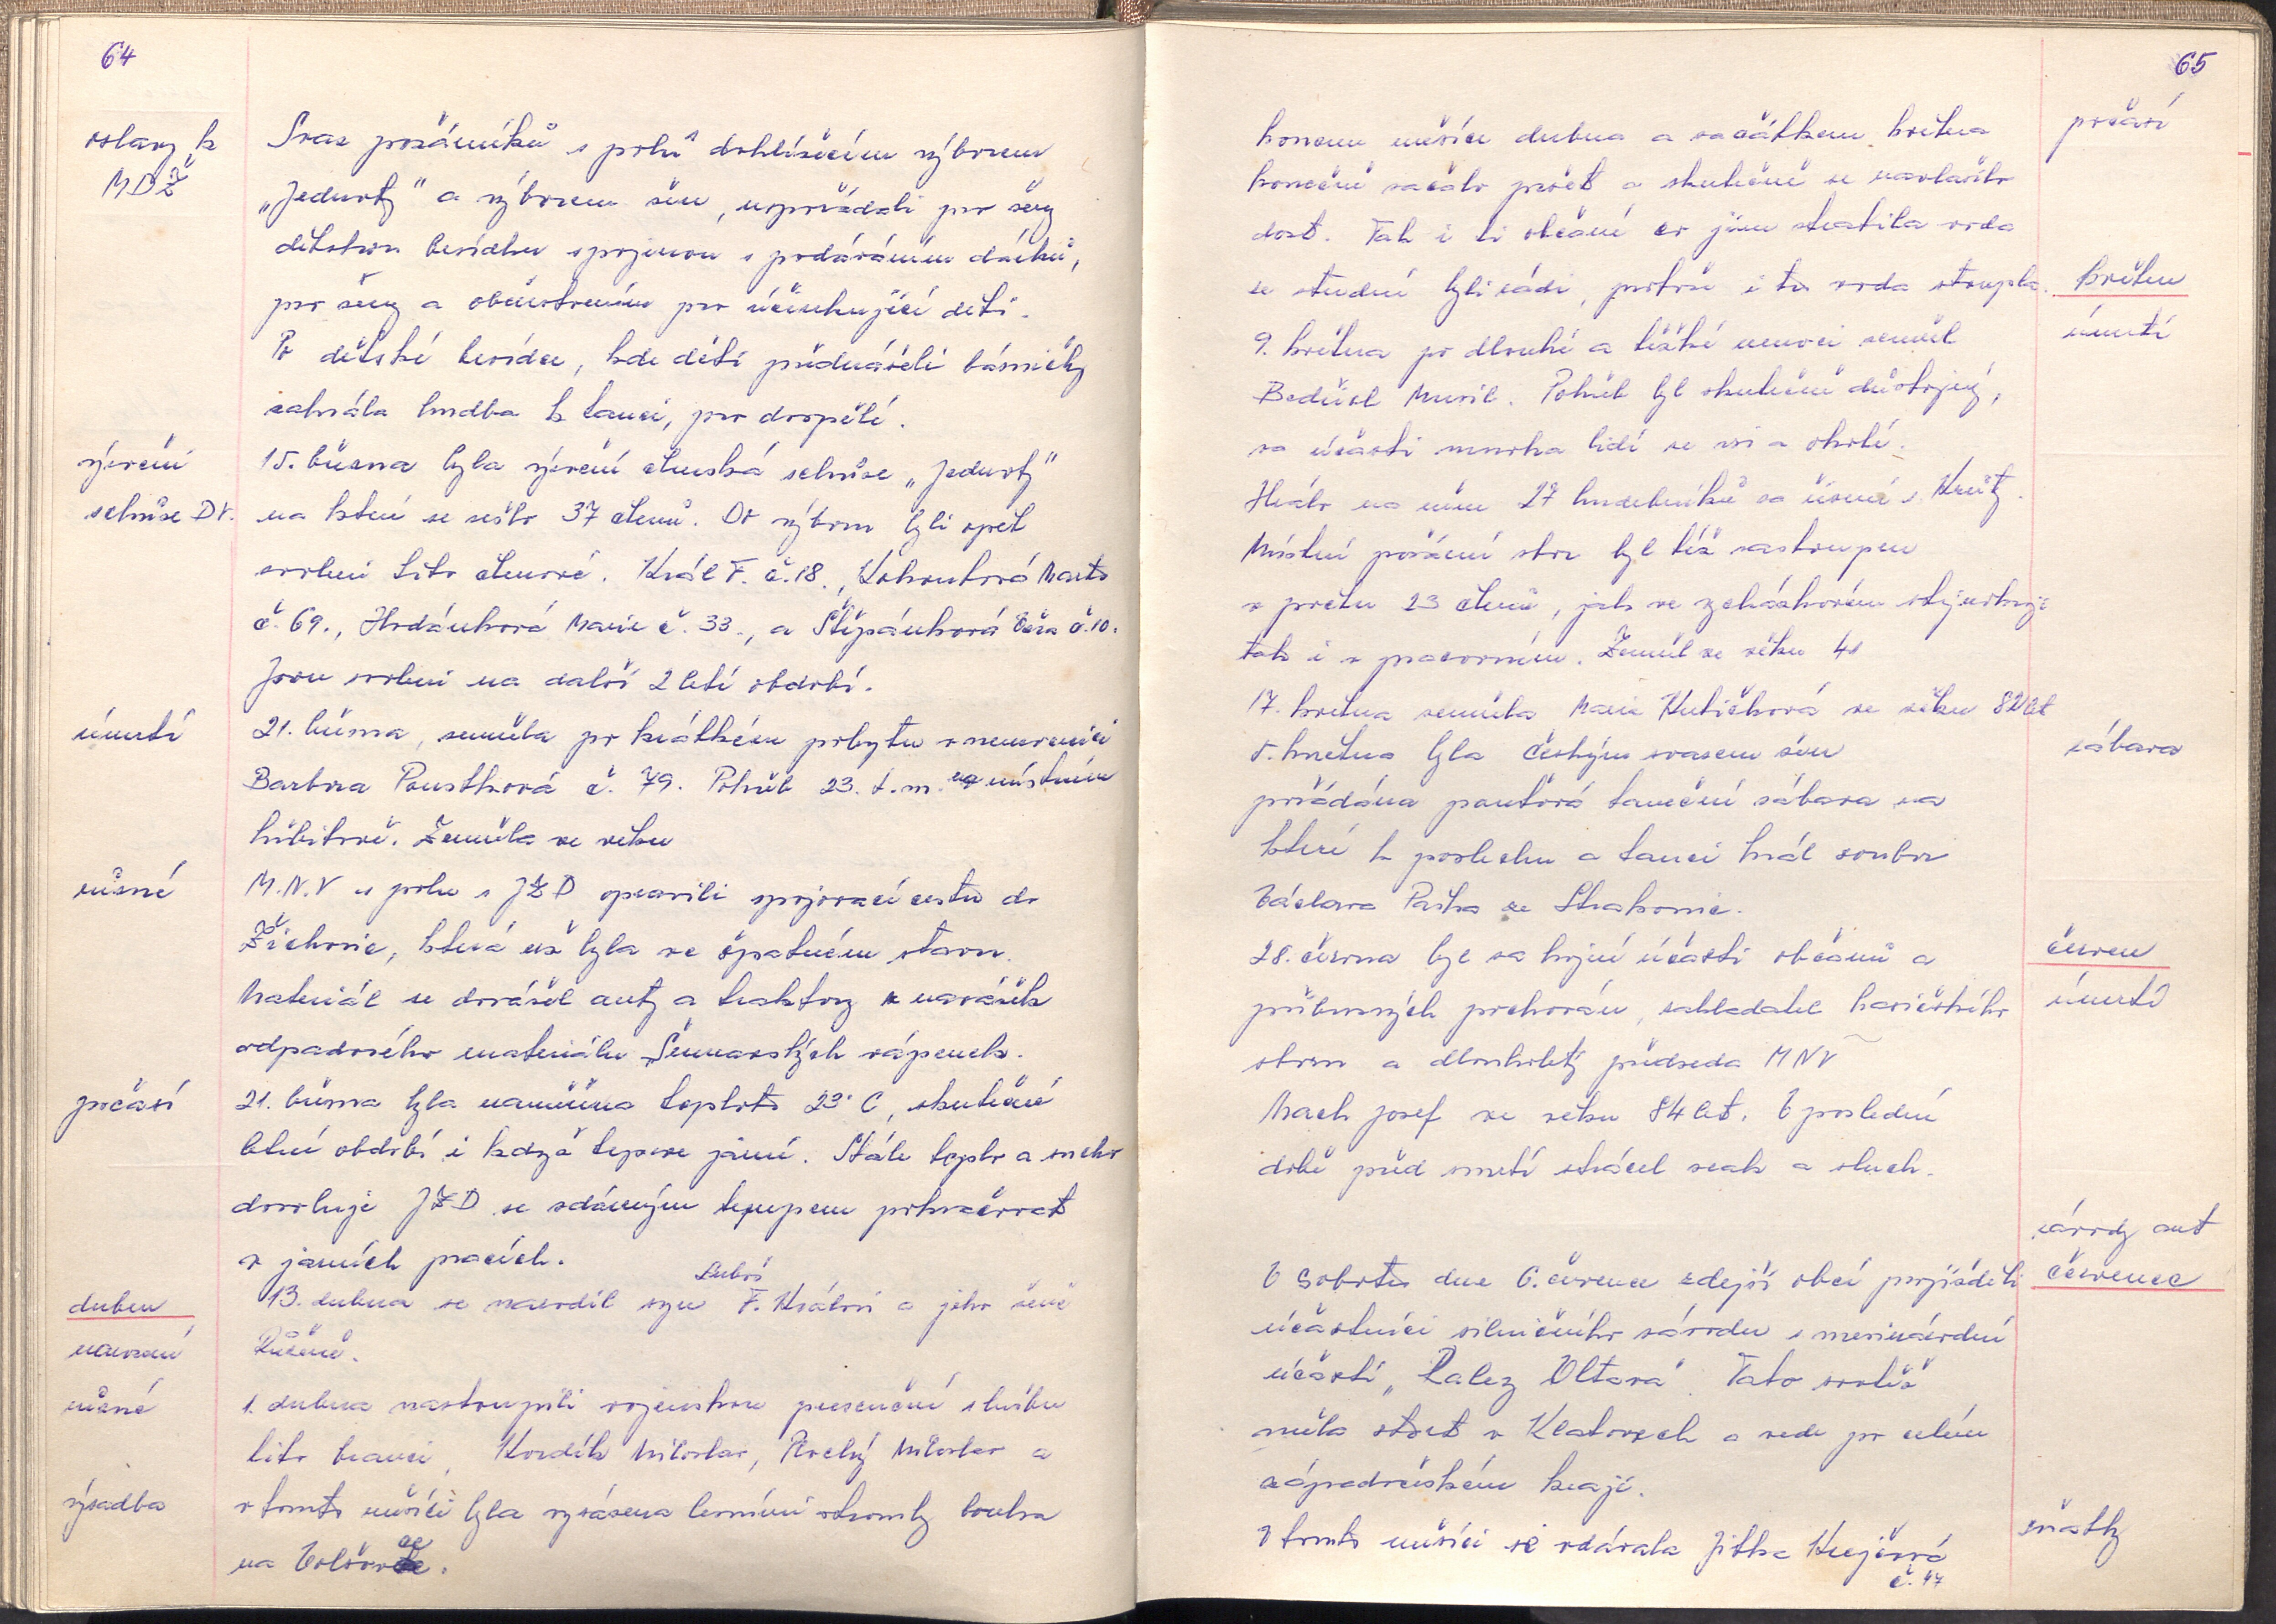 64
oslavy k
MDŽ
Svaz požárníků s polu dohlížecím výborem
„Jednoty" a výborem žen, uspořádali pro ženy
dětskou besídku spojenou s podáváním dárků,
pro ženy a občerstvením pro účinkující děti.
Po dětské besídce, kde děti přednášeli básničky
zahrála hudba k tanci, pro dospělé.
výroční
schůze DV.
15. března byla výroční členská schůze „Jednoty"
na které se sešlo 37 členů. Do výboru byli opět
zvoleni tito členové. Král F. č. 18., Kohoutová Marta
č. 69., Hrdánková Marie č. 33., a Štěpánková Věra č. 10.
Jsou zvoleni na další 2 letí období.
úmrtí
21. března, zemřela po krátkém pobytu v nemocnici
Barbora Poustková č. 79. Pohřeb 23. t. m. na místním
hřbitově. Zemřela ve věku
různé
M.N.V s polu s JZD opravili spojovací cestu do
Žichovic, která už byla ve špatném stavu.
Materiál se dovážel auty a traktory k navážek
odpadového materiálu Šumavských vápenek.
počasí
21. března byla naměřena teplota 23° C, skutečné
letní období i když teprve jarní. Stále teplo a sucho
dovoluje JZD se zdárným tempem pokračovat
v jarních pracích.
duben
narození
Luboš
13. dubna se narodil syn F. Královi a jeho ženě
Růženě.
různé
1. dubna nastoupili vojenskou presenční službu
tito branci, Kozdík Miloslav, Plochý Miloslav a
výsadba
v tomto měsíci byla vysázena lesními stromky louka
na Volšovce.
65
počasí
koncem měsíce dubna a začátkem května
konečně začalo pršet a skutečně se navlažilo
dost. Tak i ti občané co jim ztratila voda
ve studni byli rádi, protože i ta voda stoupla.
květen
úmrtí
9. května po dlouhé a těžké nemoci zemřel
Bedřich Musil. Pohřeb byl skutečně důstojný,
za účasti mnoha lidí ze vsi a okolí.
Hrálo na něm 27 hudebníků za řízení s. Kruty.
Místní požární sbor byl též zastoupen
v počtu 23 členů, jak ve vycházkovém stejnokroji
tak i v pracovním. Zemřel ve věku 41
17. května zemřela Marie Kutičková ve věku 82 let
zábava
5. května byla Českým svazem žen
pořádána pouťová taneční zábava na
které k poslechu a tanci hrál soubor
Václava Paška ze Strakonic.
červen
úmrtí
28. června byl za hojné účasti občanů a
příbuzných pochován, zakladatel hasičského
sboru a dlouholetý předseda MNV
Mach Josef ve věku 84 let. V poslední
době před smrtí ztrácel zrak a sluch.
závody aut
červenec
V sobotu dne 6. července zdejší obcí projížděli
účastníci silničního závodu s mezinárodní
účastí „Raley Vltava". Tato soutěž
měla start v Klatovech a vede po celém
západočeském kraji.
sňatky
V tomto měsíci se vdávala Jitka Krejčová
č. 47